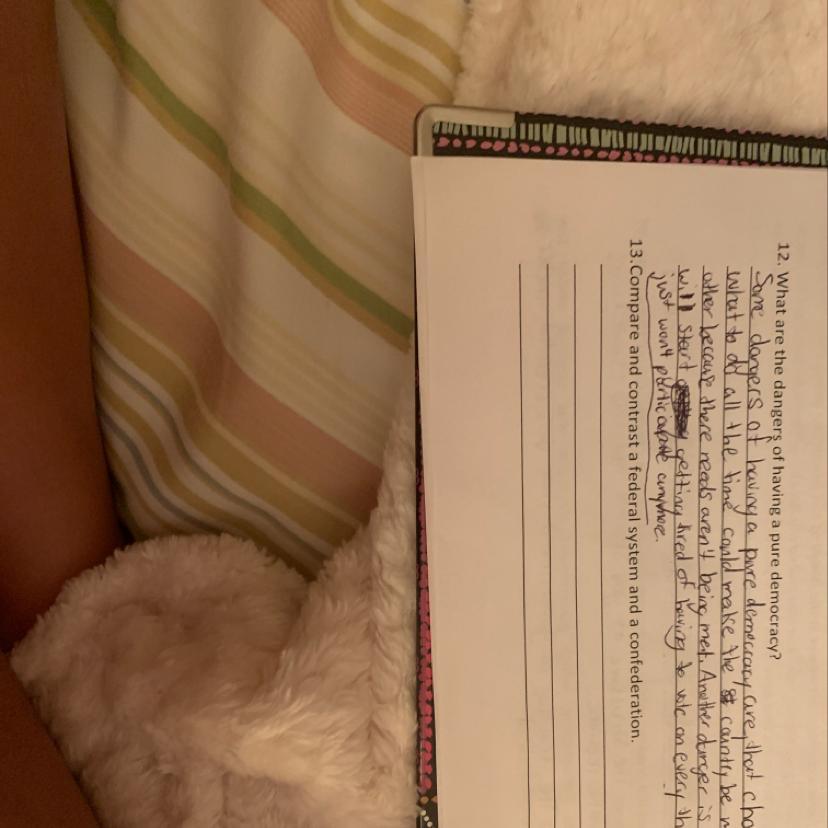 12. What are the dangers of having a pure democracy?
Some dangers of having a pure democracy are, that
what to do all the time could make the country be
other because there needs aren't being met. Another danger is
will start getting tired of having to vote on every
just won't participate anymore.
13. Compare and contrast a federal system and a confederation.